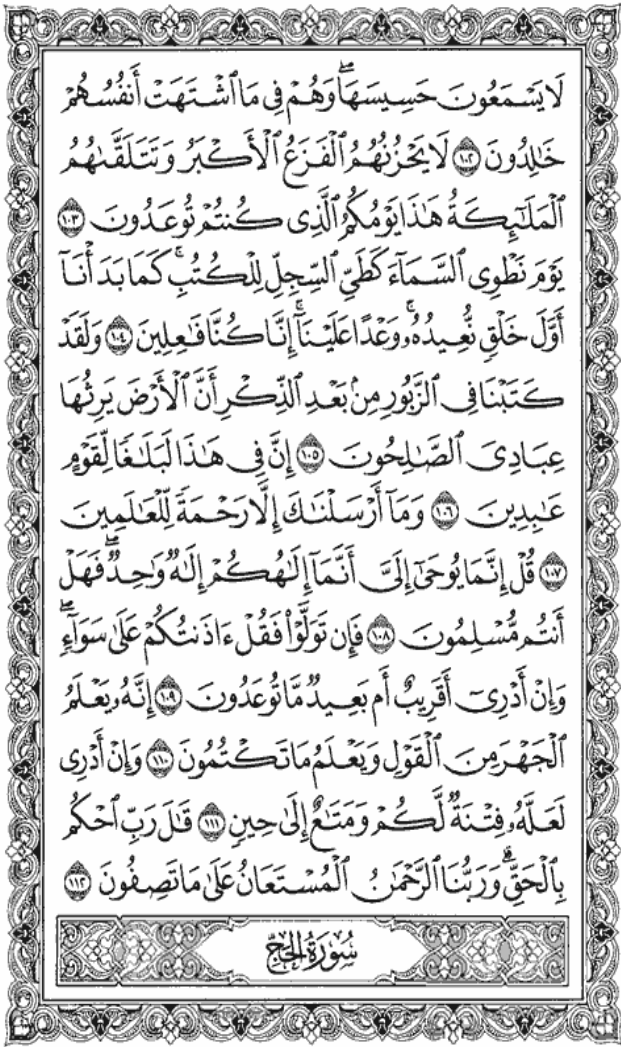 لَا يَسْمَعُونَ حَسِيسَهَا ۖ وَهُمْ فِي مَا ٱشْتَهَتْ أَنفُسُهُمْ
خَٰلِدُونَ ١٠٢ لَا يَحْزُنُهُمُ ٱلْفَزَعُ ٱلْأَكْبَرُ وَتَتَلَقَّىٰهُمُ
ٱلْمَلَٰٓئِكَةُ هَٰذَا يَوْمُكُمُ ٱلَّذِى كُنتُمْ تُوعَدُونَ ١٠٣
يَوْمَ نَطْوِى ٱلسَّمَآءَ كَطَىِّ ٱلسِّجِلِّ لِلْكُتُبِ ۚ كَمَا بَدَأْنَآ
أَوَّلَ خَلْقٍ نُّعِيدُهُۥ ۚ وَعْدًا عَلَيْنَآ ۚ إِنَّا كُنَّا فَٰعِلِينَ ١٠٤ وَلَقَدْ
كَتَبْنَا فِى ٱلزَّبُورِ مِنۢ بَعْدِ ٱلذِّكْرِ أَنَّ ٱلْأَرْضَ يَرِثُهَا
عِبَادِىَ ٱلصَّٰلِحُونَ ١٠٥ إِنَّ فِى هَٰذَا لَبَلَٰغًا لِّقَوْمٍ
عَٰبِدِينَ ١٠٦ وَمَآ أَرْسَلْنَٰكَ إِلَّا رَحْمَةً لِّلْعَٰلَمِينَ
١٠٧ قُلْ إِنَّمَا يُوحَىٰٓ إِلَىَّ أَنَّمَآ إِلَٰهُكُمْ إِلَٰهٌ وَٰحِدٌ ۖ فَهَلْ
أَنتُم مُّسْلِمُونَ ١٠٨ فَإِن تَوَلَّوْا۟ فَقُلْ ءَاذَنتُكُمْ عَلَىٰ سَوَآءٍ ۖ
وَإِنْ أَدْرِىٓ أَقَرِيبٌ أَم بَعِيدٌ مَّا تُوعَدُونَ ١٠٩ إِنَّهُۥ يَعْلَمُ
ٱلْجَهْرَ مِنَ ٱلْقَوْلِ وَيَعْلَمُ مَا تَكْتُمُونَ ١١٠ وَإِنْ أَدْرِى
لَعَلَّهُۥ فِتْنَةٌ لَّكُمْ وَمَتَٰعٌ إِلَىٰ حِينٍ ١١١ قَٰلَ رَبِّ ٱحْكُم
بِٱلْحَقِّ ۗ وَرَبُّنَا ٱلرَّحْمَٰنُ ٱلْمُسْتَعَانُ عَلَىٰ مَا تَصِفُونَ ١١٢
سُورَةُ الحَجِّ